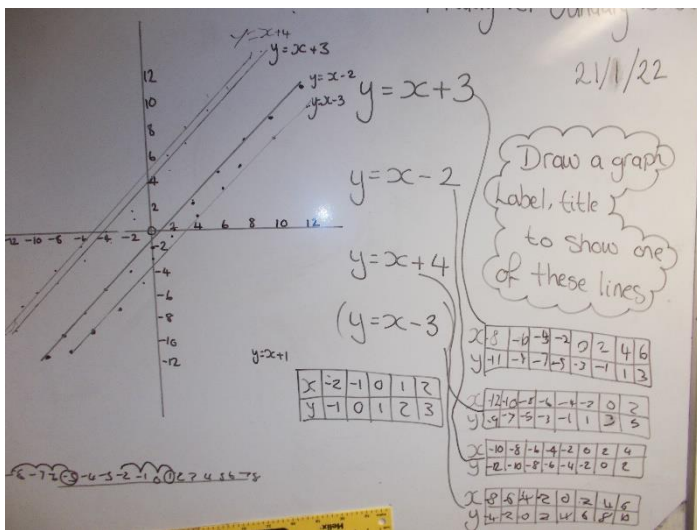 21/1/22
y=x+4
y=x+3
y=x-2
y=x-3
12
10
8
6
4
2
-12 -10 -8 -6 -4 -2 0 2 4 6 8 10 12
-2
-4
-6
-8
-10
-12
y=x+3
y=x-2
y=x+4
(y=x-3)
Draw a graph
Label, title
to show one
of these lines
y=x+1
x -2 -1 0 1 2
y -1 0 1 2 3
x -8 -6 -4 -2 0 2 4 6
y -11 -9 -7 -5 -3 -1 1 3
x -12 -10 -8 -6 -4 -2 0 2
y -9 -7 -5 -3 -1 1 3 5
x -10 -8 -6 -4 -2 0 2 4
y -12 -10 -8 -6 -4 -2 0 2
x -8 -6 -4 -2 0 2 4 6
y -4 -2 0 2 4 6 8 10
Helix